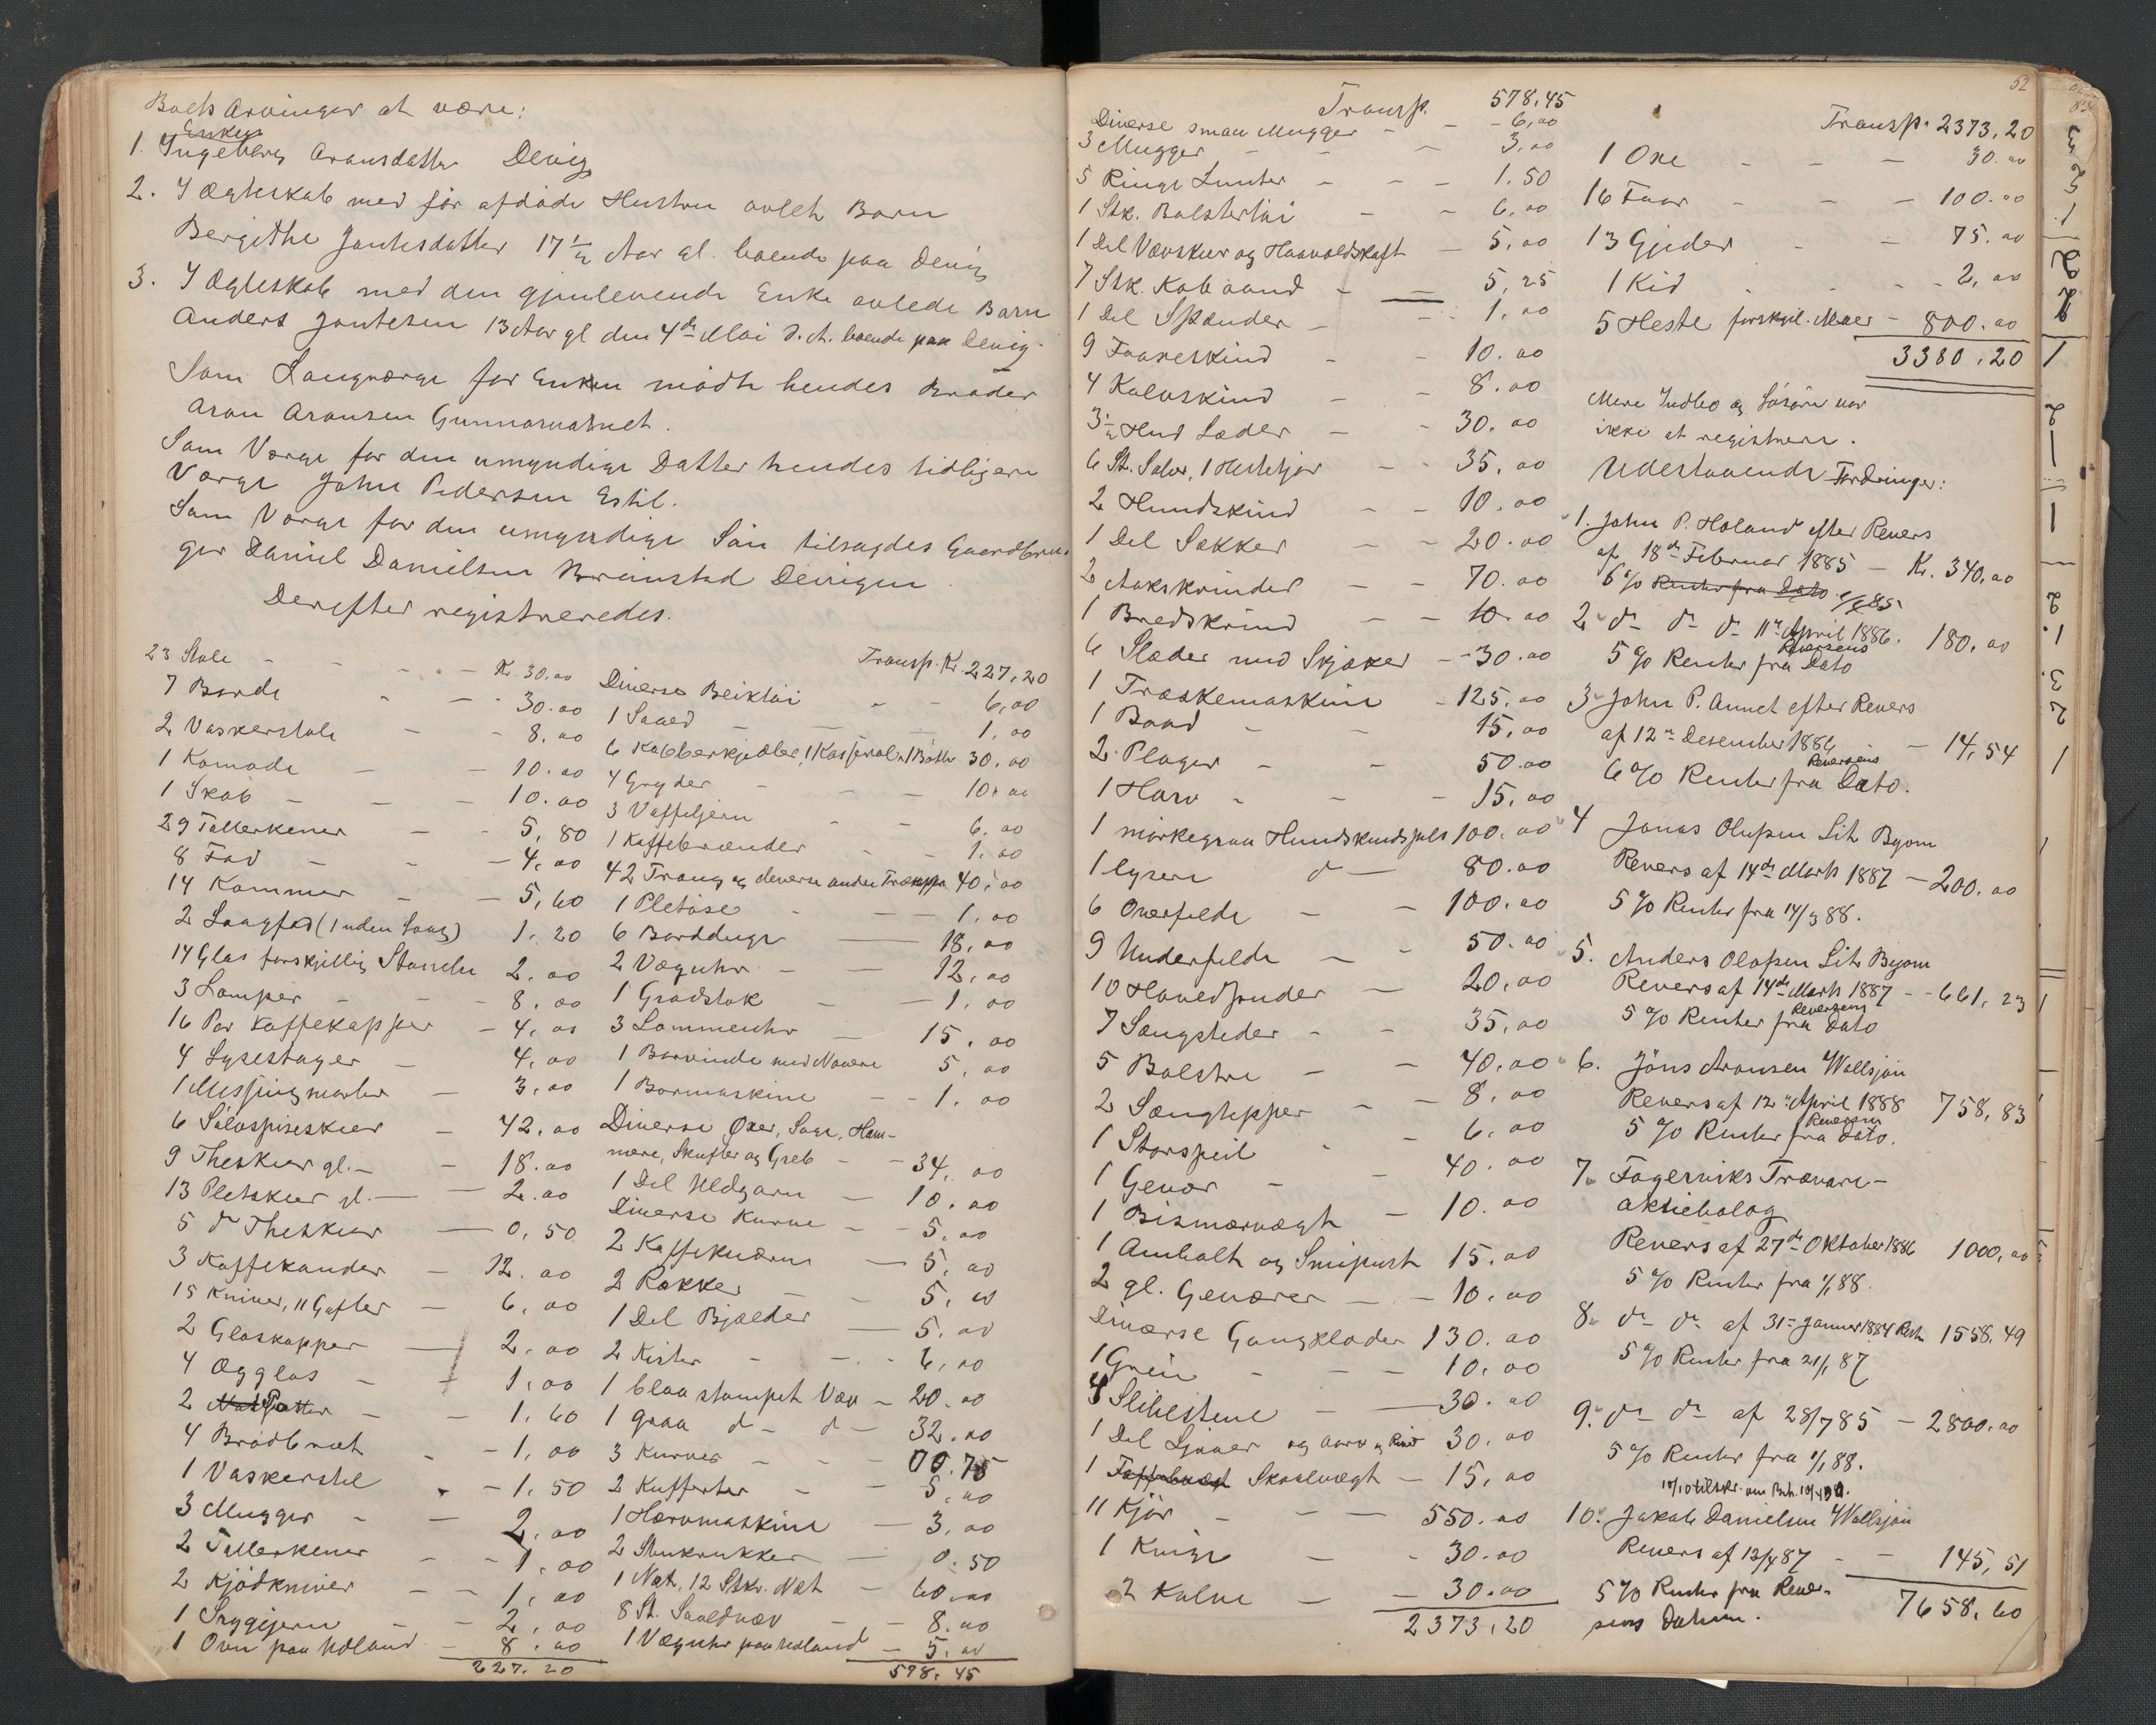 Boets Arvinger at være:
Enken
1. Ingeborg Aronsdatter Devig
2. I Ægteskab med før afdöde Hustru avlet Barn
Bergithe Jontesdatter 17 1/2 Aar gl. boende paa Devig
3. I Ægteskab med den gjenlevende Enke avlede Barn
Anders Jontesen 13 Aar gl den 4de Mai d. A. boende paa Devig.
Som Laugværge for Enken mödte hendes Broder
Aron Aronsen Gunnarvatnet.
Som Værge for den umyndige Datter hendes tidligere
Værge John Pedersen Estil.
Som Værge for den umyndige Sön tilsagdes Gaardbru-
ger Daniel Danielsen Kreinstad Devigen
Derefter registreredes.
23 Stole - - - Kr. 30.00
7 Borde - - 30.00
2 Vaskerstole - - 8.00
1 Komode - - 10.00
1 Skab - - - 10.00
29 Tallerkener - - 5,80
8 Fad - - - 4,00
14 Kommer - - 5,60
2 Laagfad (1 uden Laag) 1,20
14 Glas forskjellig Störrelse 2.00
3 Lamper - - - 8.00
16 Par Kaffekopper - 4,00
4 Lysestager - 4,00
1 Messingmorter - 3,00
6 Sølvspiseskeer - 42.00
9 Theskeer gl. - - 18.00
13 Pletskeer gl. - - 2.00
5 do Theskeer - 0,50
3 Kaffekander - 12.00
15 Kniver, 11 Gafler - 6,00
2 Glaskopper - 2,00
4 Ægglas - - 1,00
2 - - 1,60
4 Brödbret - 1,00
1 Vaskerstel - 1,50
3 Mugger - - 2,00
2 Tallerkener - - 1,00
2 Kjödkniver - - 1,00
1 Strygejern - - 2,00
1 Ovn paa Holand - 8.00
227.20
Transp. Kr. 227,20
Diverse Bleiktöi - - 6,00
1 Saaed - - 1.00
6 Kobberkjedler, 1 Kasserol, 1 Bötte 30.00
4 Gryder - - - 10.00
3 Vaffeljern - - 6.00
1 Kaffebrænder - - 1.00
42 Traug og diverse andre Trækopper 40,00
1 Pletöse - - 1.00
6 Borddugr - 18,00
2 Væguhr - - 12,00
1 Gradstok - - 1.00
3 Lommeuhr - 15.00
1 Borvinde med Navere 5,00
1 Bormaskine - - 1.00
Diverse Öxer, Sage, Ham-
mere, Skufler og Greb - - 34,00
1 Del Uldgarn - 10.00
Diverse Kurve - - 5.00
2 Kaffekværne - 5,00
2 Rokker - - 5,00
1 Del Bjælder - 5.00
2 Kister - - - 6,00
1 blaa stampet Væv - 20.00
1 graa do - do - 32.00
3 Kurver - - - 0.75
2 Kufferter - - 5,00
1 Hærvmaskine - 3,00
2 Stenkrukker - 0.50
1 Not, 12 Stk. Næt - 60.00
8 St. Saaldvæv - - 8.00
1 Væguhr paa Holand - 5.00
578.45
Transp. 578.45
Diverse smaa Mugger - - 6,00
3 Mugger - - - 3,00
5 Ringe Lunter - - - 1.50
1 Stk. Bolstertöi - - 6,00
1 Del Vævskeer og Haavoldskaft - 5,00
7 Stk. Kobaand - - 5,25
1 Del Spænder - - 1.00
9 Faareskind - - 10.00
4 Kalvskind - - 8.00
3 1/2 Hud Læder - - 30.00
6 St. Saler, 1 Hestekjör - - 35,00
2 Hundskind - - 10.00
1 Del Sækker - - 20.00
2 Aakskrinder - - 70.00
1 Bredskrind - - 10.00
6 Slæder med Skjæker - - 30.00
1 Træskemaskine - 125.00
1 Baad - - 15,00
2 Plager - - 50.00
1 Harv - - 15,00
1 mörkegraa Hundskindspels 100.00
1 lysere do - 80.00
6 Overfelde - - 100.00
9 Underfelde - - 50.00
10 Hovedpuder - 20,00
7 Sængsteder - - 35,00
5 Bolstre - - 40.00
2 Sængtepper - - 8,00
1 Storspeil - - 6,00
1 Gevær - - 40.00
1 Bismarvægt - 10.00
1 Ambolt og Smipust 15.00
2 gl. Geværer - - 10.00
Diverse Gangklæder 130.00
1 Grein - - - 10,00
4 Slibestene - - 30.00
1 Del Ljaaer og Aarv og River 30.00
1 Skaalvægt - 15,00
11 Kjör - - - 550.00
1 Kvige - - 30.00
2 Kalve - - 30.00
2373.20
52
Transp. 2373,20
1 Oxe - - - 30.00
16 Faar - - - 100.00
13 Gjeder - - 75.00
1 Kid - - - 2,00
5 Heste forskjel. Alder - 800.00
3380.20
Mere Indbo og Lösöre var
ikke at registrere.
Udestaaende Fordringer:
1. John P. Holand efter Revers
af 18de Februar 1885 - Kr. 340,00
6% Renter fra Dato 85
2. do do do 11te April 1886. 180,00
5% Renter fra Reversens Dato
3. John P. Annet efter Revers
af 12te Desember 1886 - 14,54
6% Renter fra Reversens Dato.
4 Jonas Olofsen Lit. Byom
Revers af 14de Marts 1887 - 200.00
5% Renter fra 14/3 88.
5. Anders Olofsen Lit. Byom
Revers af 14de Marts 1887 - - 661,23
5% Renter fra Reversens Dato
6. Jöns Aronsen Wallsjön
Revers af 12te April 1888 758,83
5% Renter fra Reversens Dato.
7. Fagerviks Trævare-
aktiebolag
Revers af 27de Oktober 1886 1000,00
5% Renter fra 1/1 88.
8. do do af 31te Januar 1884 Rest 1558.49
5% Renter fra 21/1 87
9. do do af 28/7 85 - 2800.00
5% Renter fra 1/1 88.
10. Jakob Danielsen Wallsjön
Revers af 13/4 87 - - 145,51
5% Renter fra Rever-
sens Datum. 7658,60